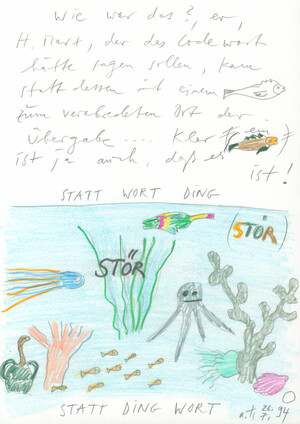 Wie war das?, er,
H. Marx, der das Codewort
hätte sagen sollen, kam
statt dessen mit einem
zum verabredeten Ort der
Übergabe ..... Klar ≠ ein ≠
ist ja auch, daß es
ist!
STATT WORT DING
STÖR
(STÖR)
STATT DING WORT
26. 7. 94